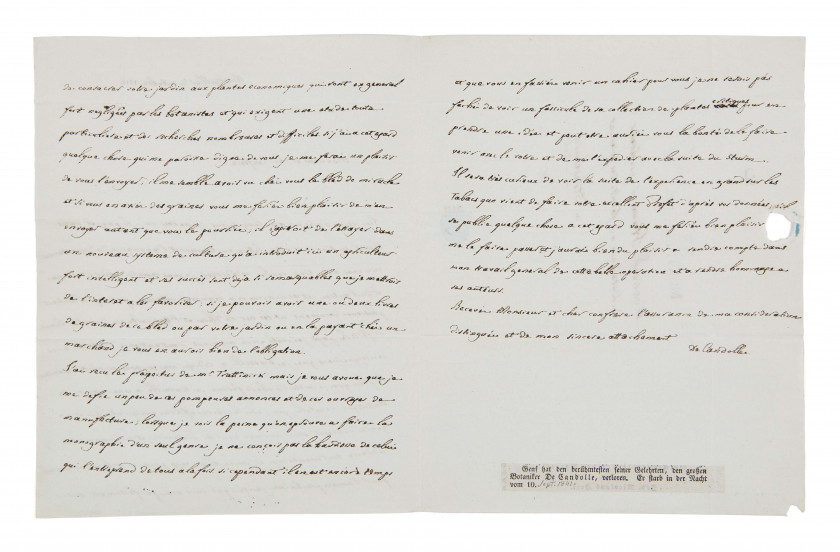 de consacrer votre jardin aux plantes économiques qui sont en general
fort negligées par les botanistes et qui exigent une etude toute
particuliere et des recherches nombreuses et difficiles si j'ai a cet egard
quelque chose qui me paroisse digne de vous je me ferai un plaisir
de vous l'envoyer; il me semble avoir vu chés vous le bled de miracle
et si vous en aviez des graines vous me feriez bien plaisir de m'en
envoyer autant que vous le pourriez; il s'agiroit de l'essayer dans
un nouveau systeme de culture qu'a introduit ici un agriculteur
fort intelligent et ses succès sont deja si remarquables que je mettrois
de l'interet a les favoriser, si je pouvois avoir une ou deux livres
de graines de ce bled ou par votre jardin ou en la payant chés un
marchand je vous en aurois bien de l'obligation.
J'ai recu le prospectus de Mr Trattinick mais je vous avoue que je
me defie un peu de ces pompeuses annonces et de ces ouvrages de
manufacture; lorsque je vois la peine qu'on eprouve a faire la
monographie d'un seul genre je ne conçois pas la hardiesse de celui
qui l'entreprend de tous a la fois si cependant il en est encor à temps
et que vous en fassiez venir un cahier pour vous je ne serois pas
faché de voir un fascicule de sa collection de plantes critiques pour en
prendre une idée et peut etre auriez vous la bonté de le faire
venir avec le votre et de me l'expedier avec la suite du Sturm.
Il sera très curieux de voir la suite de l'experience en grand sur les
Tabacs que vient de faire votre excellent Prefet d'après vos données, s'il
se publie quelque chose a cet egard vous me feriez bien plaisir
me le faire passer et j'aurois bien du plaisir a rendre compte dans
mon travail general de cette belle operation et a rendre hommage a
ses auteurs.
Recevez Monsieur et cher confrere l'assurance de ma consideration
distinguée et de mon sincere attachement
De Candolle
Genf hat den berühmtesten seiner Gelehrten, den großen
Botaniker De Candolle, verloren. Er starb in der Nacht
vom 10. Sept. 1841.